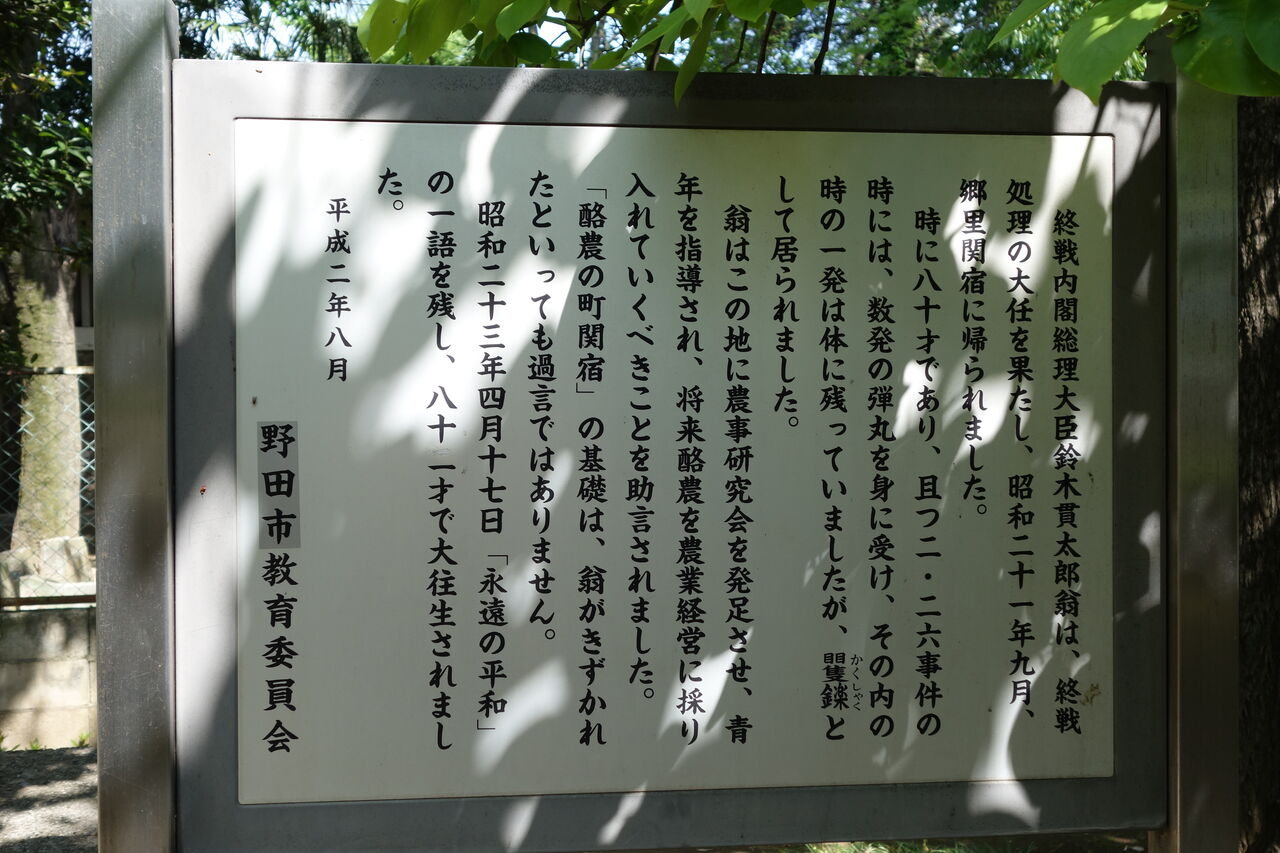 終戦内閣総理大臣鈴木貫太郎翁は、終戦
処理の大任を果たし、昭和二十一年九月、
郷里関宿に帰られました。
時に八十才であり、且つ二・二六事件の
時には、数発の弾丸を身に受け、その内の
時の一発は体に残っていましたが、矍鑠と
かくしゃく
して居られました。
翁はこの地に農事研究会を発足させ、青
年を指導され、将来酪農を農業経営に採り
入れていくべきことを助言されました。
「酪農の町関宿」の基礎は、翁がきずかれ
たといっても過言ではありません。
昭和二十三年四月十七日「永遠の平和」
の一語を残し、八十一才で大往生されまし
た。
平成二年八月
野田市教育委員会